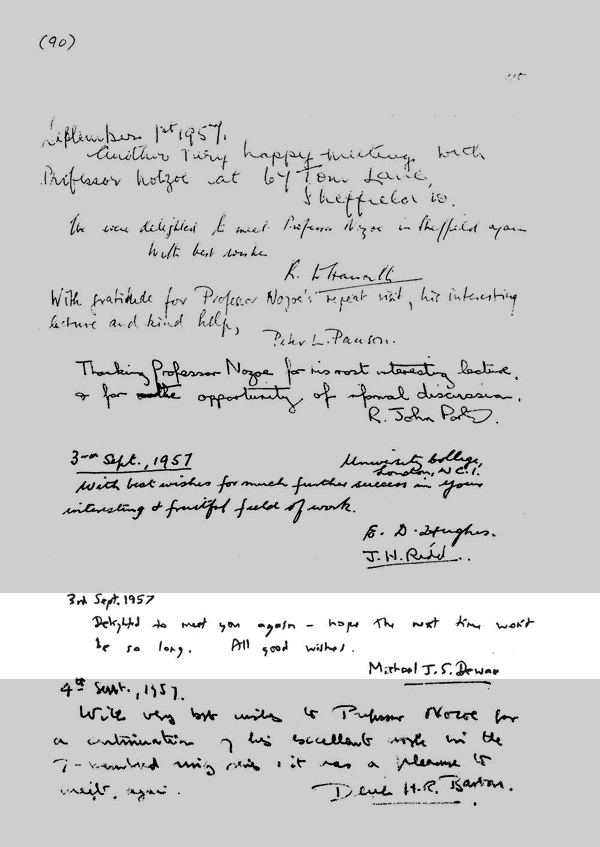 (90)
September 1st 1957.
Another very happy meeting with
Professor Nozoe at 67 Tom Lane,
Sheffield 10.
We were delighted to meet Professor Nozoe in Sheffield again
With best wishes
R. D. Haworth
With gratitude for Professor Nozoe's repeat visit, his interesting
lecture and kind help,
Peter L. Pauson.
Thanking Professor Nozoe for his most interesting lecture,
& for the opportunity of informal discussion.
R. John
3rd Sept., 1957
University College,
London, W.C.1.
With best wishes for much further success in your
interesting & fruitful field of work.
E. D. Hughes.
J. H. Ridd.
3rd Sept. 1957
Delighted to meet you again – hope the next time won't
be so long. All good wishes.
Michael J. S. Dewar
4th Sept., 1957.
With very best wishes to Professor Nozoe for
a continuation of his excellent work in the
7-membered ring series : it was a pleasure to
meet again.
Derek H. R. Barton.